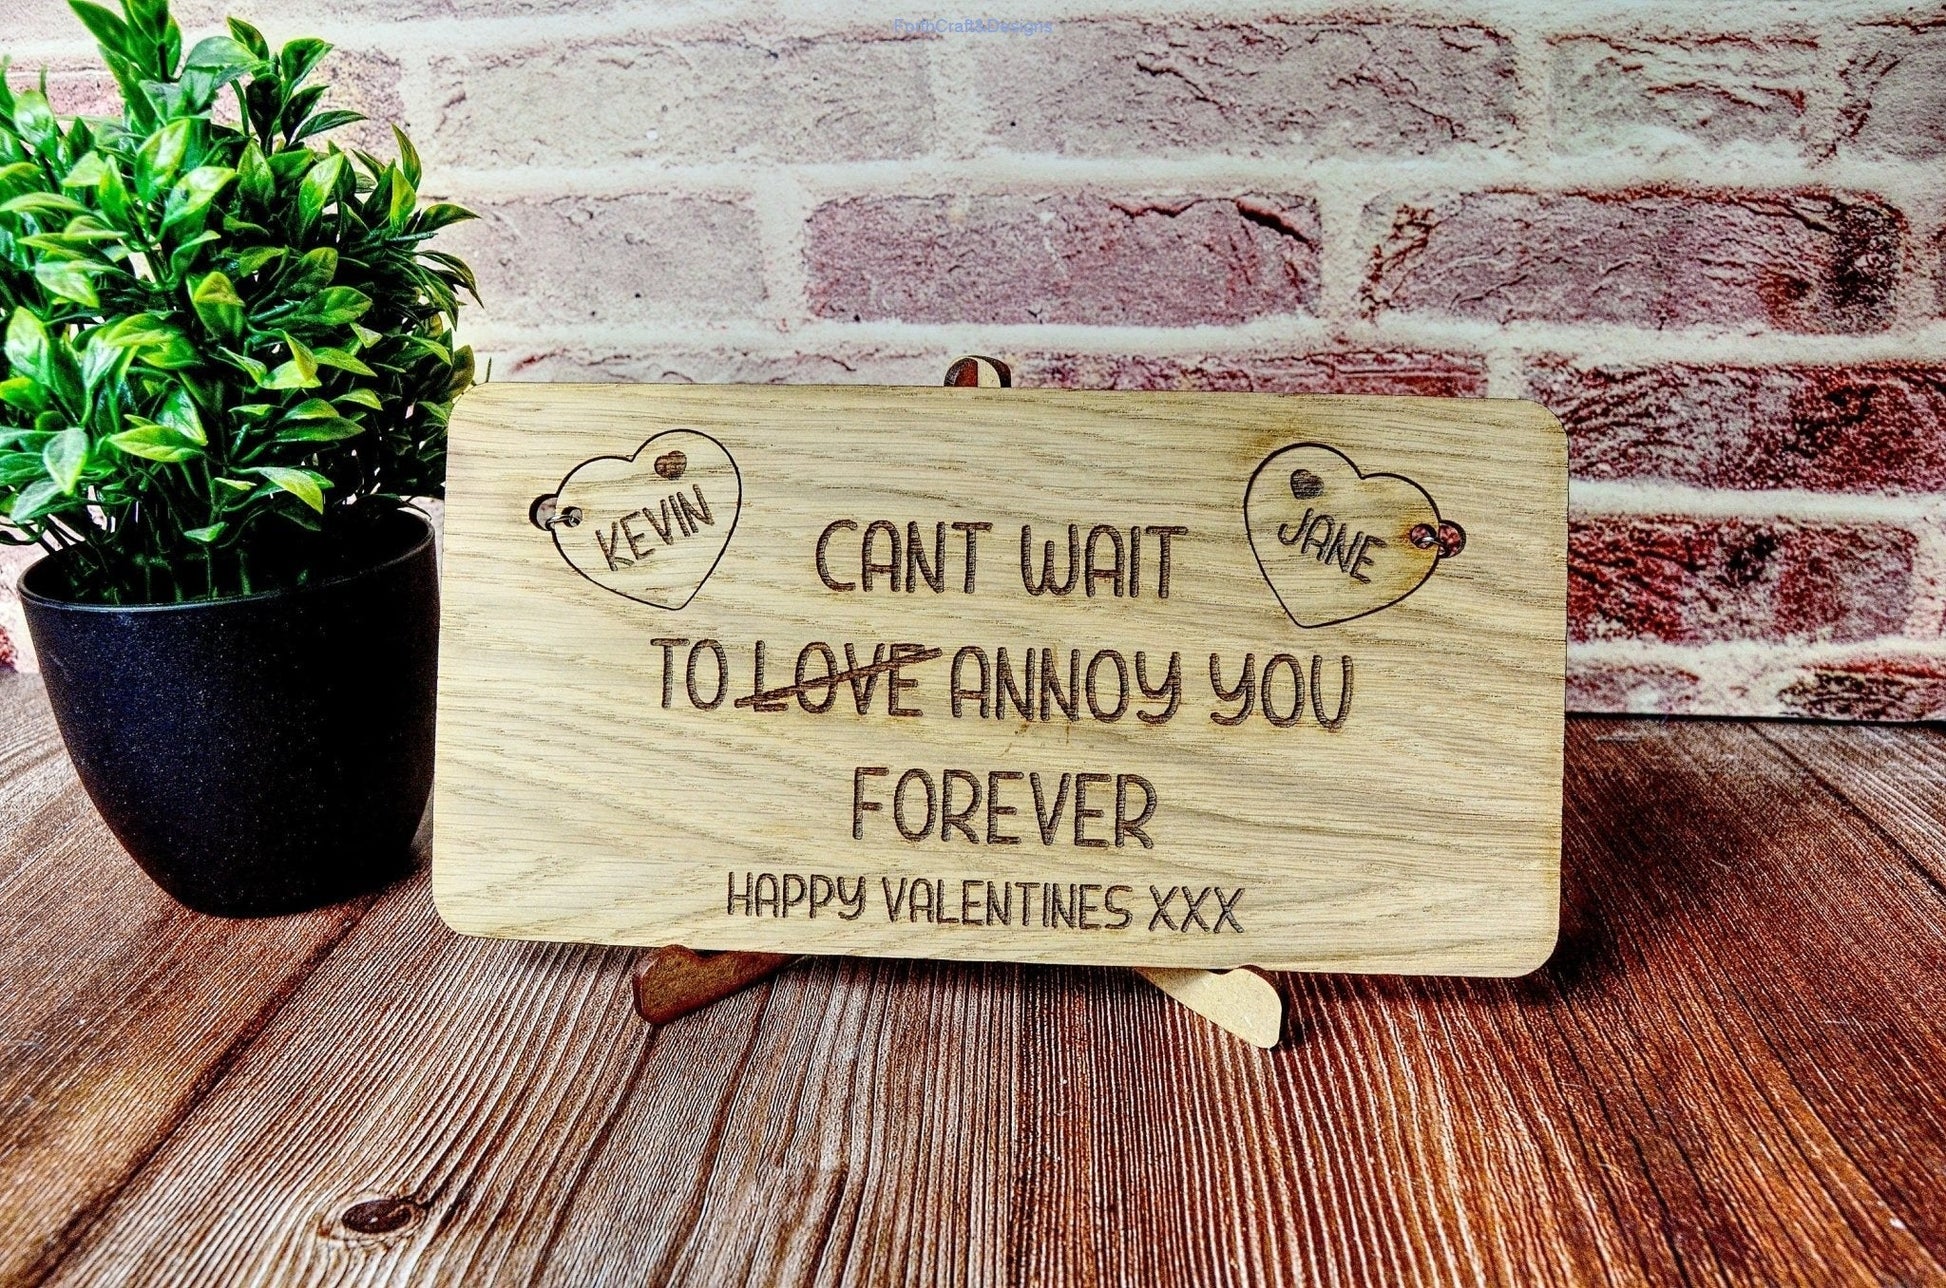 ForthCraft&Designs
KEVIN
JANE
CANT WAIT
TO LOVE ANNOY YOU
FOREVER
HAPPY VALENTINES XXX